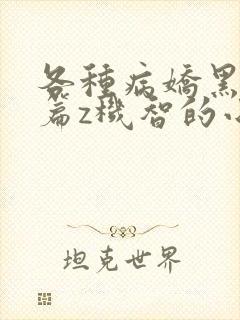 各種病嬌黑
篇z機智的小
坦克世界